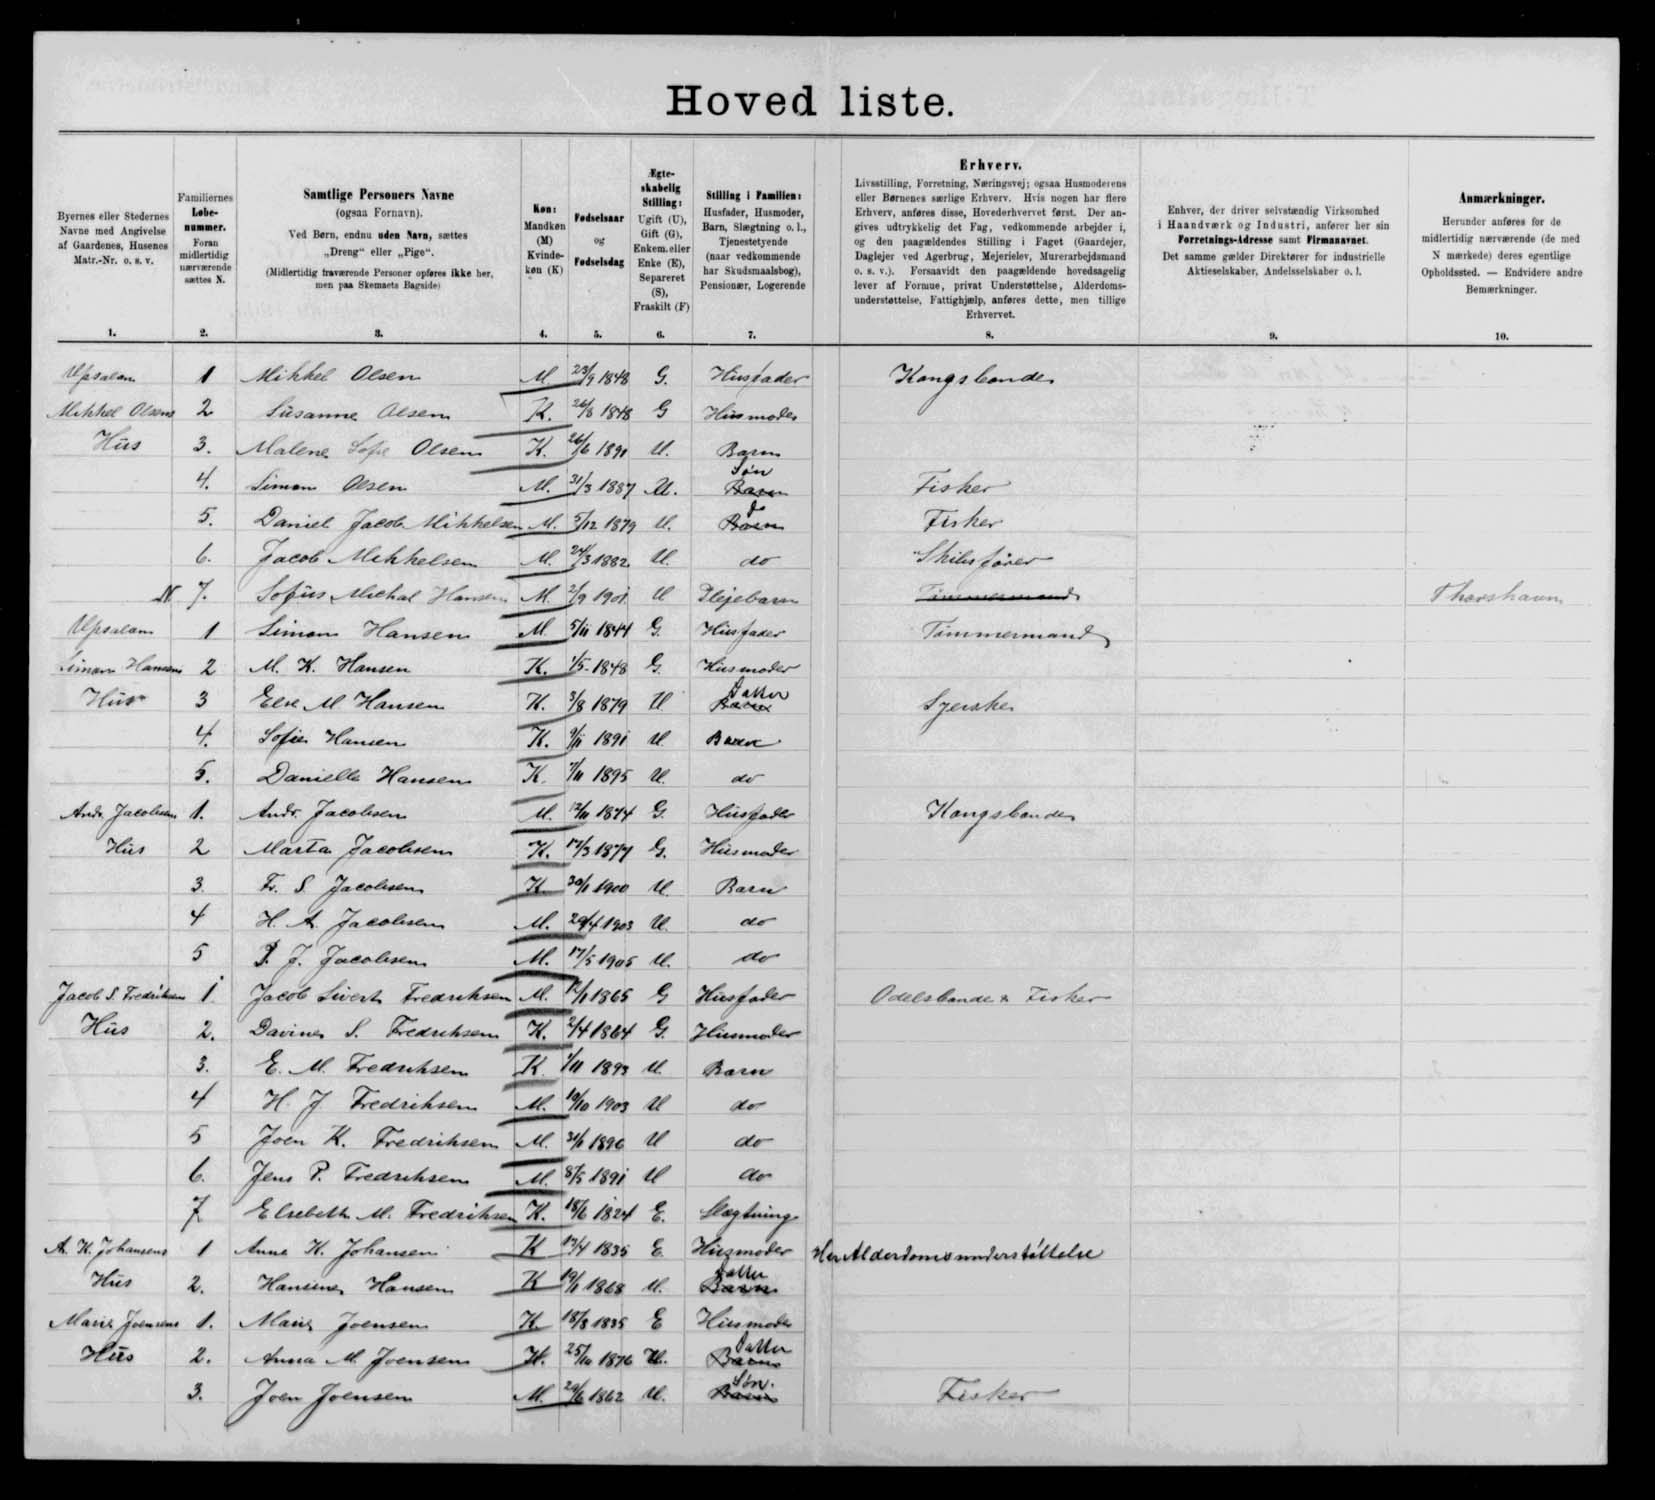 Hoved liste.
Byernes eller Stedernes Navne med Angivelse af Gaardenes, Husenes Matr.-Nr. o. s. v.
Familiernes Løbe-nummer. Foran midlertidig nærværende sættes N.
Samtlige Personers Navne
(ogsaa Fornavn).
Ved Børn, endnu uden Navn, sættes „Dreng“ eller „Pige“.
(Midlertidig fraværende Personer opføres ikke her, men paa Skemaets Bagside)
Køn: Mandkøn (M) Kvinde-køn (K)
Fødselsaar og Fødselsdag
Ægte-skabelig Stilling: Ugift (U), Gift (G), Enkem. eller Enke (E), Separeret (S), Fraskilt (F)
Stilling i Familien: Husfader, Husmoder, Barn, Slægtning o. l., Tjenestetyende (naar vedkommende har Skudsmaalsbog), Pensionær, Logerende
Erhverv.
Livsstilling, Forretning, Næringsvej; ogsaa Husmoderens eller Børnenes særlige Erhverv. Hvis nogen har flere Erhverv, anføres disse, Hovederhvervet først. Der angives udtrykkelig det Fag, vedkommende arbejder i, og den paagældendes Stilling i Faget (Gaardejer, Daglejer ved Agerbrug, Mejerielev, Murerarbejdsmand o. s. v.). Forsaavidt den paagældende hovedsagelig lever af Formue, privat Understøttelse, Alderdomsunderstøttelse, Fattighjælp, anføres dette, men tillige Erhvervet.
Enhver, der driver selvstændig Virksomhed i Haandværk og Industri, anfører her sin Forretnings-Adresse samt Firmanavnet. Det samme gælder Direktører for industrielle Aktieselskaber, Andelsselskaber o. l.
Anmærkninger.
Herunder anføres for de midlertidig nærværende (de med N mærkede) deres egentlige Opholdssted. — Endvidere andre Bemærkninger.
1. 2. 3. 4. 5. 6. 7. 8. 9. 10.
Upsalam 1 Mikkel Olsen M. 23/9 1848 G. Husfader Kongsbonde
Mikkel Olsens 2 Susanne Olsen K. 26/8 1848 G Husmoder
Hus 3. Malene Sofie Olsen K. 26/6 1891 U. Barn
4. Simon Olsen M. 31/3 1887 U. Barn Søn Fisker
5. Daniel Jacob Mikkelsen M. 5/12 1879 U. Barn do Fisker
6. Jacob Mikkelsen M. 24/3 1882 U. do Skibsfører
N 7. Sofus Michal Hansen M. 2/9 1901 U Plejebarn Tømmermand Thorshavn
Upsalam 1 Simon Hansen M. 5/11 1844 G. Husfader Tømmermand
Simon Hansens 2 M. K. Hansen K. 1/5 1848 G. Husmoder
Hus 3 Else M Hansen K. 3/8 1879 U Barn Datter Syerske
4. Sofie Hansen K. 9/11 1891 U. Barn
5. Danielle Hansen K. 7/11 1895 U. do
Andr. Jacobsens 1. Andr. Jacobsen M. 12/11 1874 G. Husfader Kongsbonde
Hus 2 Marta Jacobsen K. 17/3 1877 G. Husmoder
3. Fr. S. Jacobsen K 30/1 1900 U. Barn
4 H. A. Jacobsen M. 29/4 1903 U. do
5 P. J. Jacobsen M. 17/5 1905 U. do
Jacob S. Fredriksens 1 Jacob Sivert Fredriksen M. 12/1 1865 G Husfader Odelsbonde & Fisker
Hus 2. Davine S. Fredriksen K. 2/4 1864 G. Husmoder
3. E. M. Fredriksen K 1/11 1893 U. Barn
4 H. J Fredriksen M. 10/10 1903 U do
5 Joen K. Fredriksen M. 31/1 1896 U do
6. Jens P. Fredriksen M. 8/5 1891 U do
7 Elsebeth M. Fredriksen K. 18/6 1824 E. Slægtning
A. K. Johansens 1 Anne K. Johansen K 13/4 1835 E. Husmoder Alderdomsunderstøttelse
Hus 2. Hansine Hansen K 19/1 1868 U. Barn Datter
Marie Joensens 1. Marie Joensen K. 18/8 1835 E Husmoder
Hus 2. Anna M. Joensen K. 25/10 1876 U. Barn Datter
3. Joen Joensen M. 29/6 1862 U. Barn Søn. Fisker